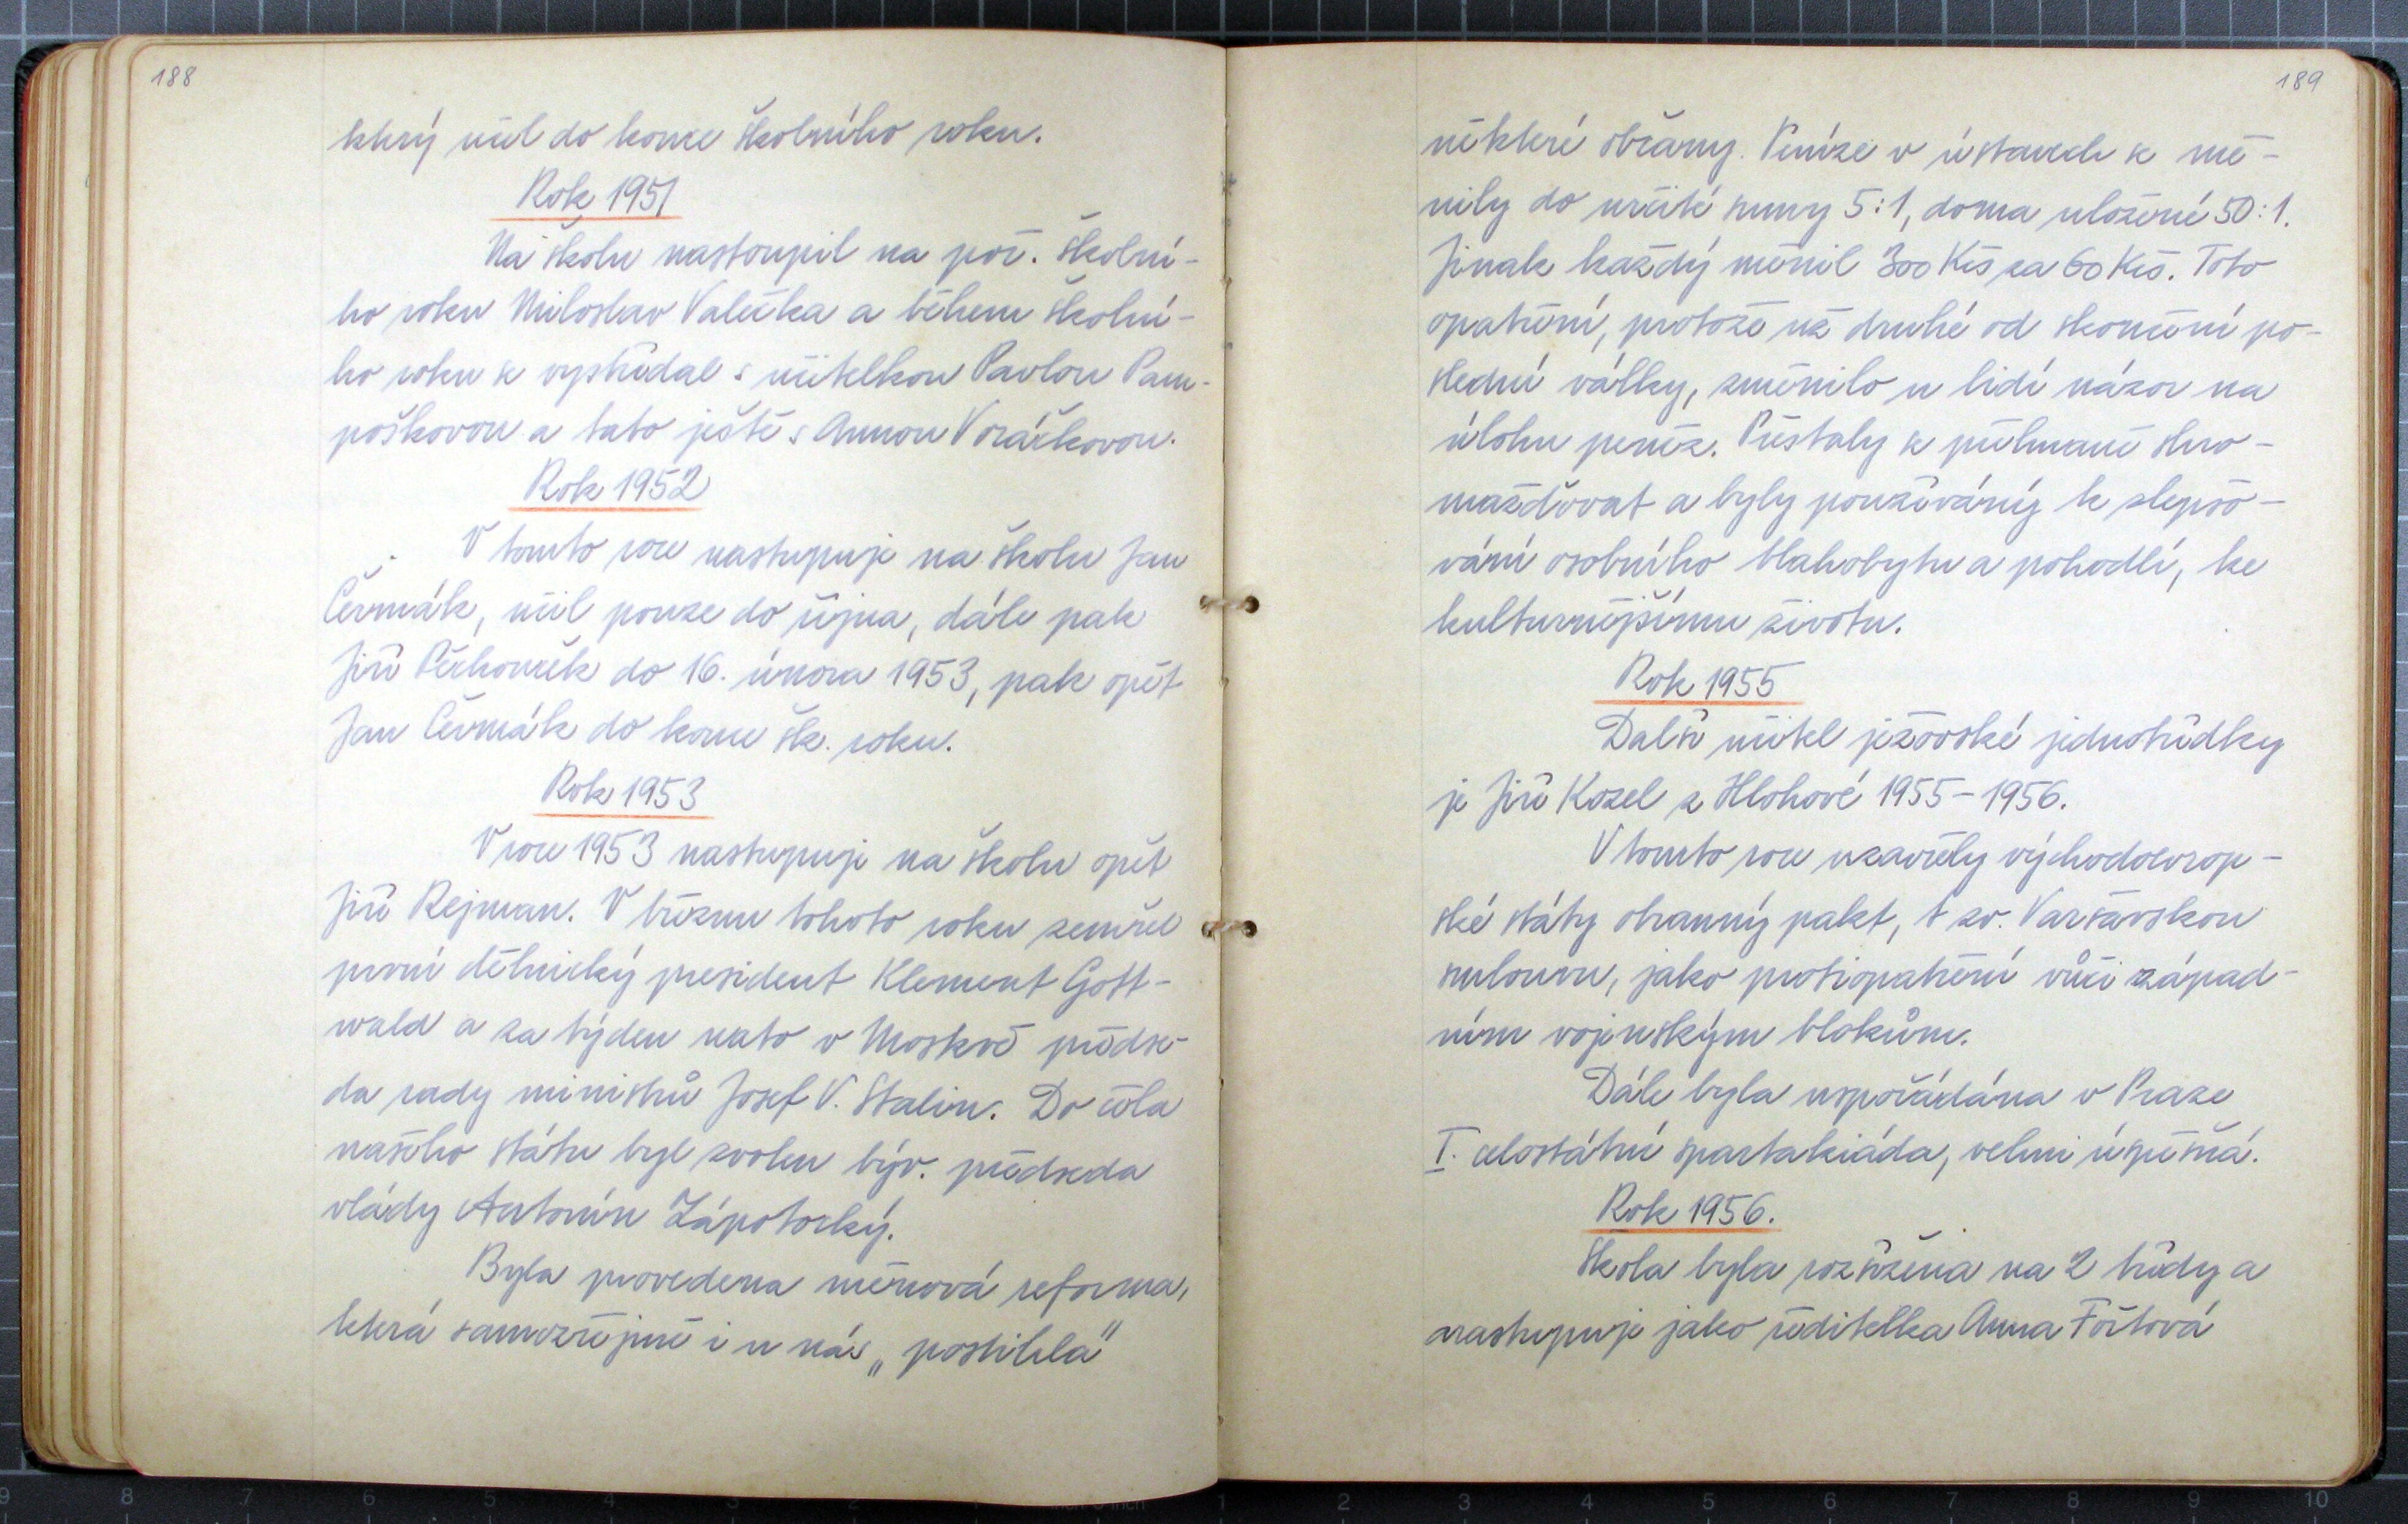 188
který učil do konce školního roku.
Rok 1951
Na školu nastoupil na poč. školní-
ho roku Miloslav Valečka a během školní-
ho roku se vystřídal s učitelkou Pavlou Pam-
poškovou a tato ještě s Annou Voráčkovou.
Rok 1952
V tomto roce nastupuje na školu Jan
Čermák, učil pouze do října, dále pak
Jiří Pechouček do 16. února 1953, pak opět
Jan Čermák do konce šk. roku.
Rok 1953
V roce 1953 nastupuje na školu opět
Jiří Rejman. V březnu tohoto roku zemřel
první dělnický president Klement Gott-
wald a za týden nato v Moskvě předse-
da rady ministrů Josef V. Stalin. Do čela
našeho státu byl zvolen býv. předseda
vlády Antonín Zápotocký.
Byla provedena měnová reforma,
která samozřejmě i u nás „postihla"
189
některé občany. Peníze v ústavech se mě-
nily do určité sumy 5:1, doma uložené 50:1.
Jinak každý měnil 300 Kčs za 60 Kčs. Toto
opatření, protože už druhé od skončení po-
slední války, změnilo u lidí názor na
úlohu peněz. Přestaly se přehnaně shro-
mažďovat a byly používány k zlepšo-
vání osobního blahobytu a pohodlí, ke
kulturnějšímu životu.
Rok 1955
Další učitel ježovské jednotřídky
je Jiří Kozel z Hlohové 1955-1956.
V tomto roce uzavřely východoevrop-
ské státy obranný pakt, t zv. Varšavskou
smlouvu, jako protiopatření vůči západ-
ním vojenským blokům.
Dále byla uspořádána v Praze
I. celostátní spartakiáda, velmi úspěšná.
Rok 1956.
Škola byla rozšířena na 2 třídy a
nastupuje jako ředitelka Anna Foitová